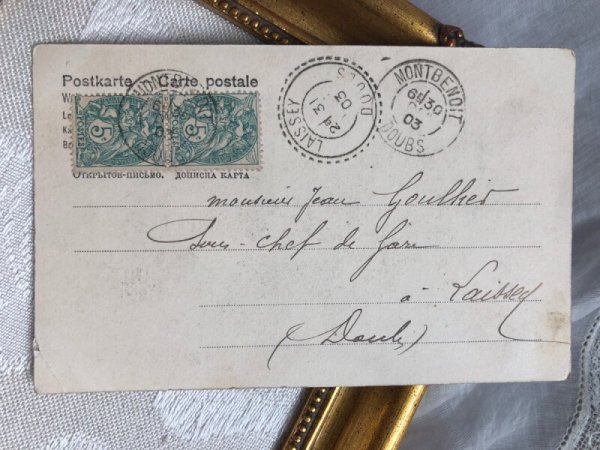 Postkarte Carte postale
5
5
POSTES
MONTBENOIT
DOUBS
6E30
03
LAISSEY
DOUBS
24
3
03
Открытое-письмо. ДОПИСНА КАРТА
monsieur Jean Goullier
Sous-chef de Gare
à Laissey
(Doubs)